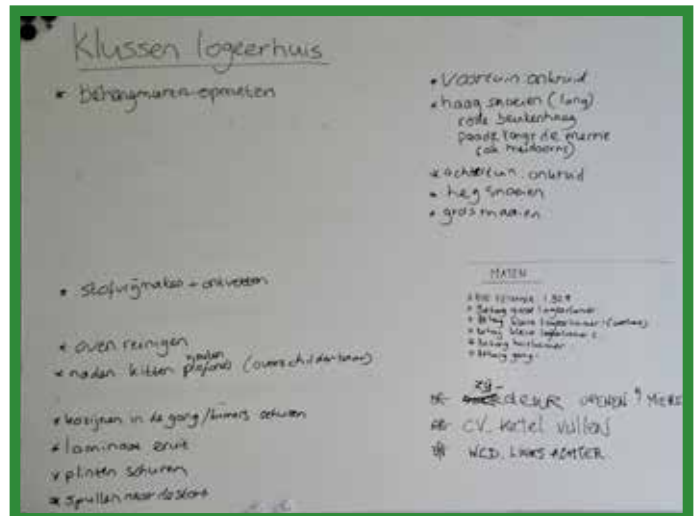 Klussen logeerhuis
* behangmuren opmeten
* stofvrijmaken + ontvetten
* oven reinigen
* naden kitten naden plafonds (overschilderbaar)
* kozijnen in de gang/kamers schuren
* laminaat eruit
* plinten schuren
* spullen naar de stort
* Voortuin onkruid
* haag snoeien (lang)
rode beukenhaag
paadje langs de
(ook meidoorns)
* achtertuin onkruid
* heg snoeien
* gras maaien
MATEN
* Behang grote logeerkamer
* Behang kleine logeerkamer 1
* Behang kleine logeerkamer 2
* Behang huiskamer
* Behang gang
* zij-deur OPENEN
* CV. ketel vullen
* LINKS ACHTER